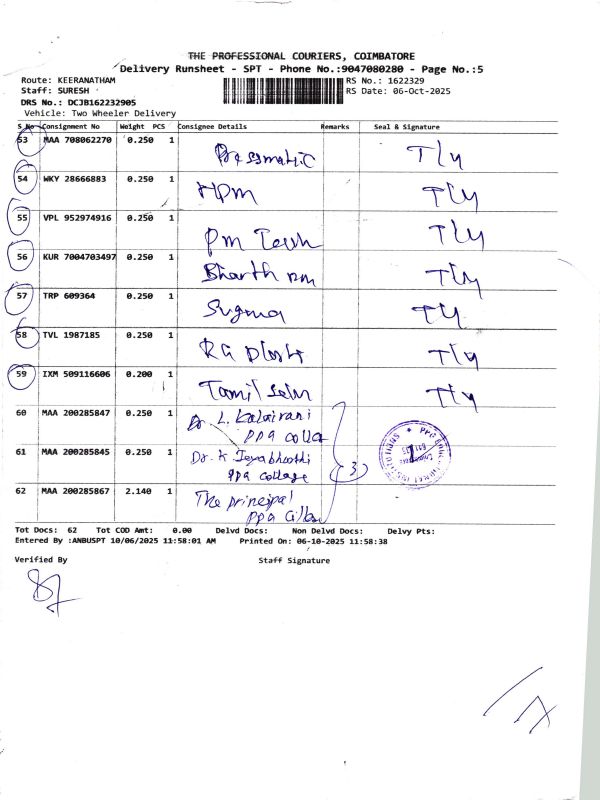 THE PROFESSIONAL COURIERS, COIMBATORE
Delivery Runsheet - SPT - Phone No.:9047080280 - Page No.:5
Route: KEERANATHAM RS No.: 1622329
Staff: SURESH RS Date: 06-Oct-2025
DRS No.: DCJB162232905
Vehicle: Two Wheeler Delivery
S No Consignment No Weight PCS Consignee Details Remarks Seal & Signature
53 MAA 708062270 0.250 1
54 WKY 28666883 0.250 1 HPM
55 VPL 952974916 0.250 1 PM Tech
56 KUR 7004703497 0.250 1 Bharth PM
57 TRP 609364 0.250 1 Sugma
58 TVL 1987185 0.250 1 RG Plast
59 IXM 509116606 0.200 1 Tamil Selvn
60 MAA 200285847 0.250 1 Dr. L. Kalairani
PPG
61 MAA 200285845 0.250 1 Dr. K Jeyabharthi
PPG College
62 MAA 200285867 2.140 1 The principal
PPG
3
Tot Docs: 62 Tot COD Amt: 0.00 Delvd Docs: Non Delvd Docs: Delvy Pts:
Entered By :ANBUSPT 10/06/2025 11:58:01 AM Printed On: 06-10-2025 11:58:38
Verified By Staff Signature